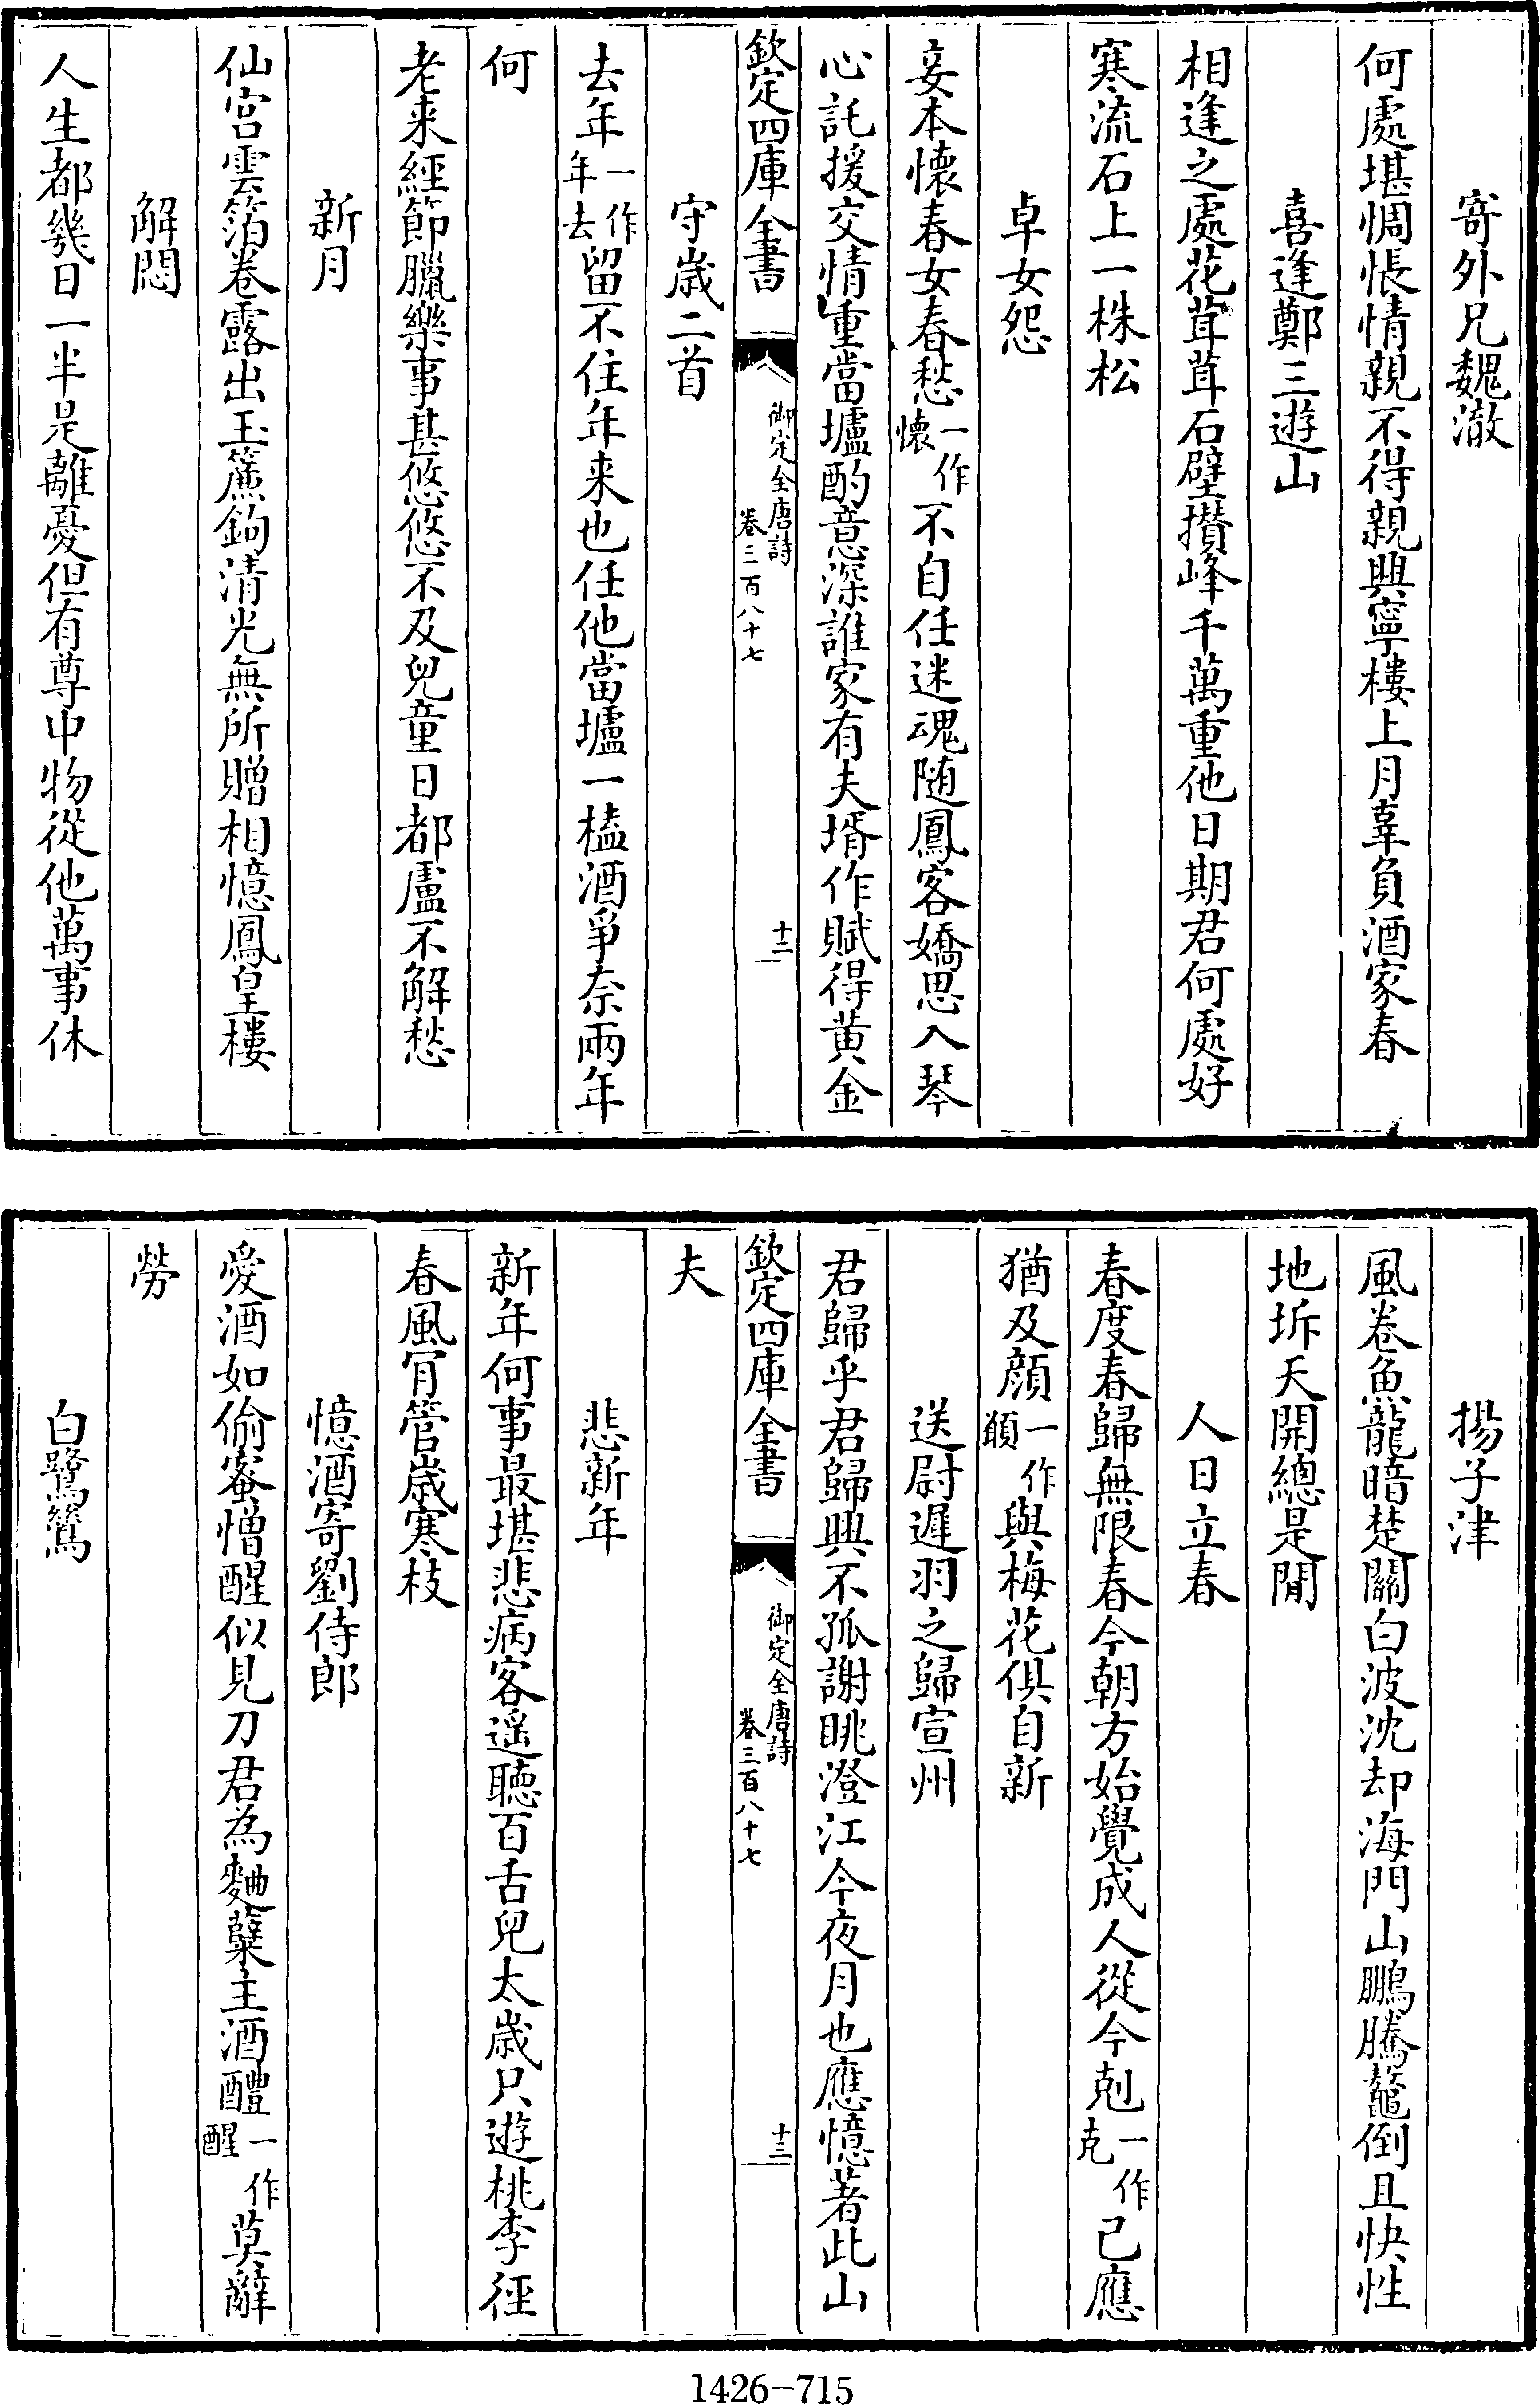 寄外兄魏澈
何處堪惆悵情親不得親興寧樓上月辜負酒家春
喜逢鄭三遊山
相逢之處花茸茸石壁攢峰千萬重他日期君何處好
寒流石上一株松
卓女怨
妾本懷春女春愁一作懷不自任迷魂隨鳳客嬌思入琴
心託援交情重當壚酌意深誰家有夫壻作賦得黄金
欽定四庫全書 御定全唐詩 卷三百八十七 十二
守歲二首
去年一作年去留不住年来也任他當壚一榼酒爭奈兩年
何
老来經節臘樂事甚悠悠不及兒童日都盧不解愁
新月
仙宫雲箔卷露出玉簾鉤清光無所贈相憶鳳皇樓
解悶
人生都幾日一半是離憂但有尊中物從他萬事休
揚子津
風卷魚龍暗楚關白波沈却海門山鵬騰鼇倒且快性
地坼天開總是閒
人日立春
春度春歸無限春今朝方始覺成人從今剋一作克己應
猶及顔一作願與梅花俱自新
送尉遲羽之歸宣州
君歸乎君歸興不孤謝眺澄江今夜月也應憶著此山
欽定四庫全書 御定全唐詩 卷三百八十七 十三
夫
悲新年
新年何事最堪悲病客遥聽百舌兒太歲只遊桃李徑
春風肎管歲寒枝
憶酒寄劉侍郎
愛酒如偷蜜憎醒似見刀君為麴糵主酒醴一作醒莫辭
勞
白鷺鷥
1426-715